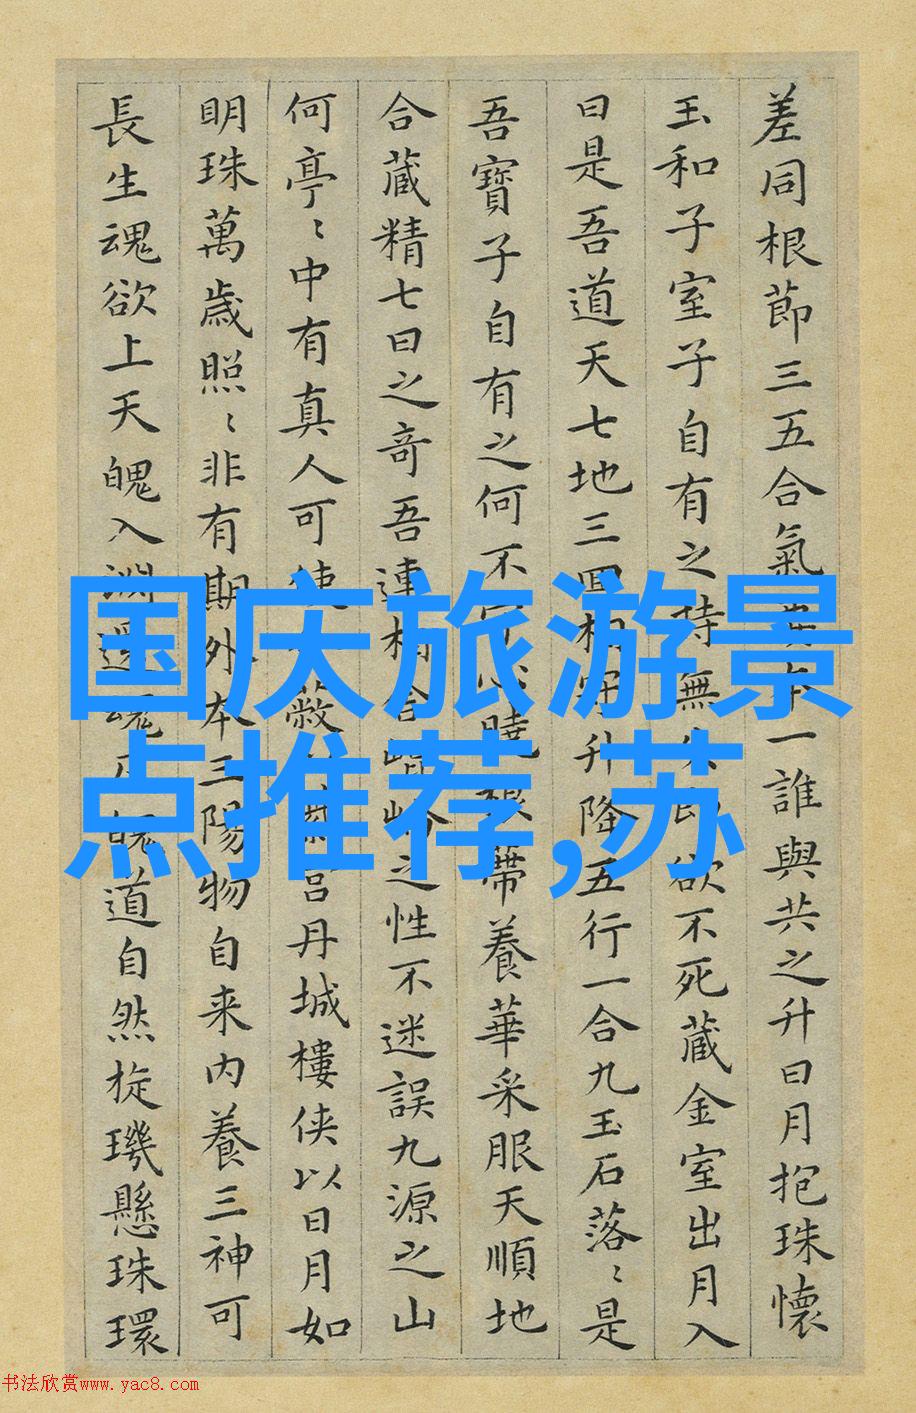 差同根節三五合氣一誰與共之升日月抱珠懷
玉和子室子自有之持無欲不死藏金室出月入
日是吾道天七地三升降五行一合九玉石落〻是
吾寶子自有之何不帶養華采服天順地
合藏精七日之奇吾連之性不迷誤九源之山
何亭〻中有真人可使丹城樓俠以日月如
明珠萬歲照〻非有期外本三陽物自来内養三神可
長生魂欲上天魄入淵道自然旋璣懸珠環
国庆旅游景
点推荐,苏
书法欣赏www.yac8.com